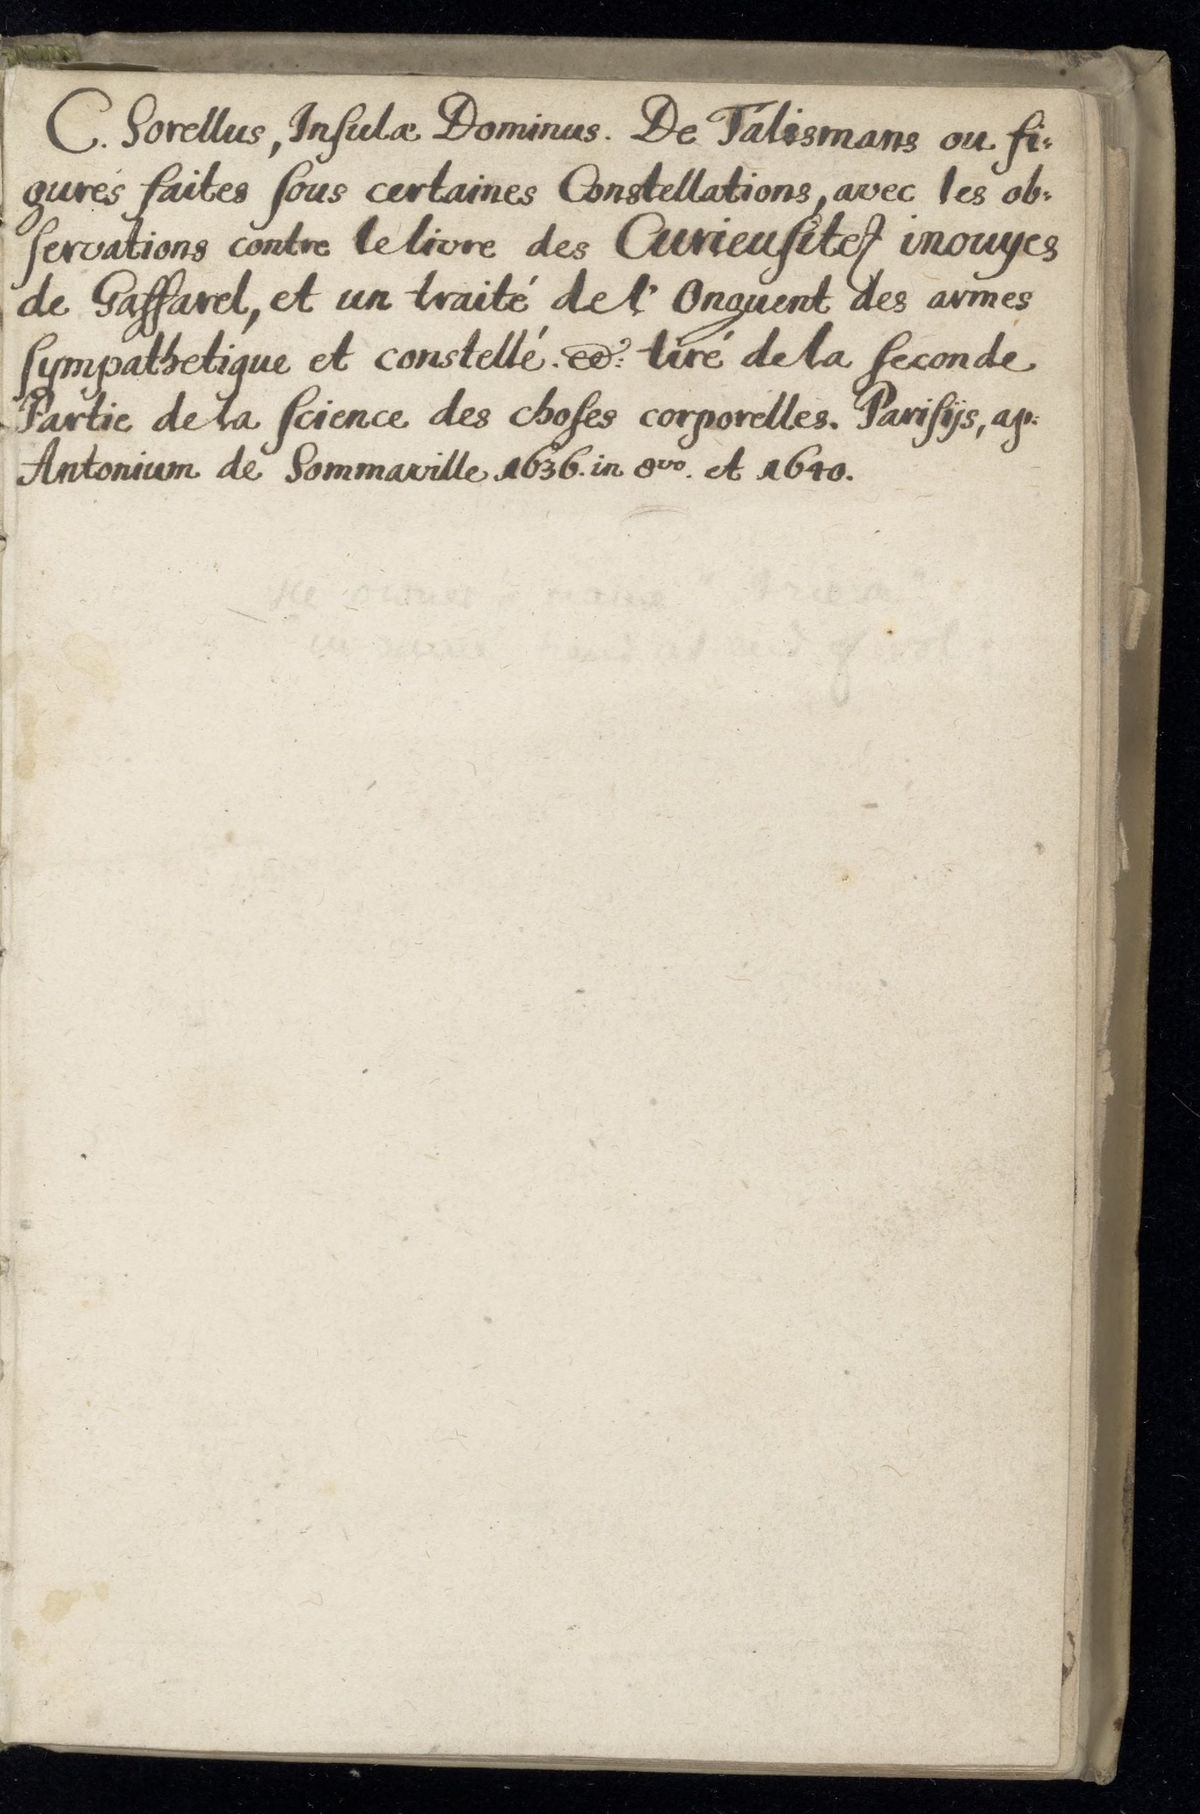 C. Sorellus, Insulæ Dominus. De Talismans ou fi:
gures faites sous certaines Constellations, avec les ob:
servations contre le livre des Curieusitez inouyes
de Gaffarel, et un traité de l' Onguent des armes
sympathetique et constellé. tiré de la seconde
Partie de la science des choses corporelles. Parisijs, ap:
Antonium de Sommaville 1636. in 8vo. et 1640.
name